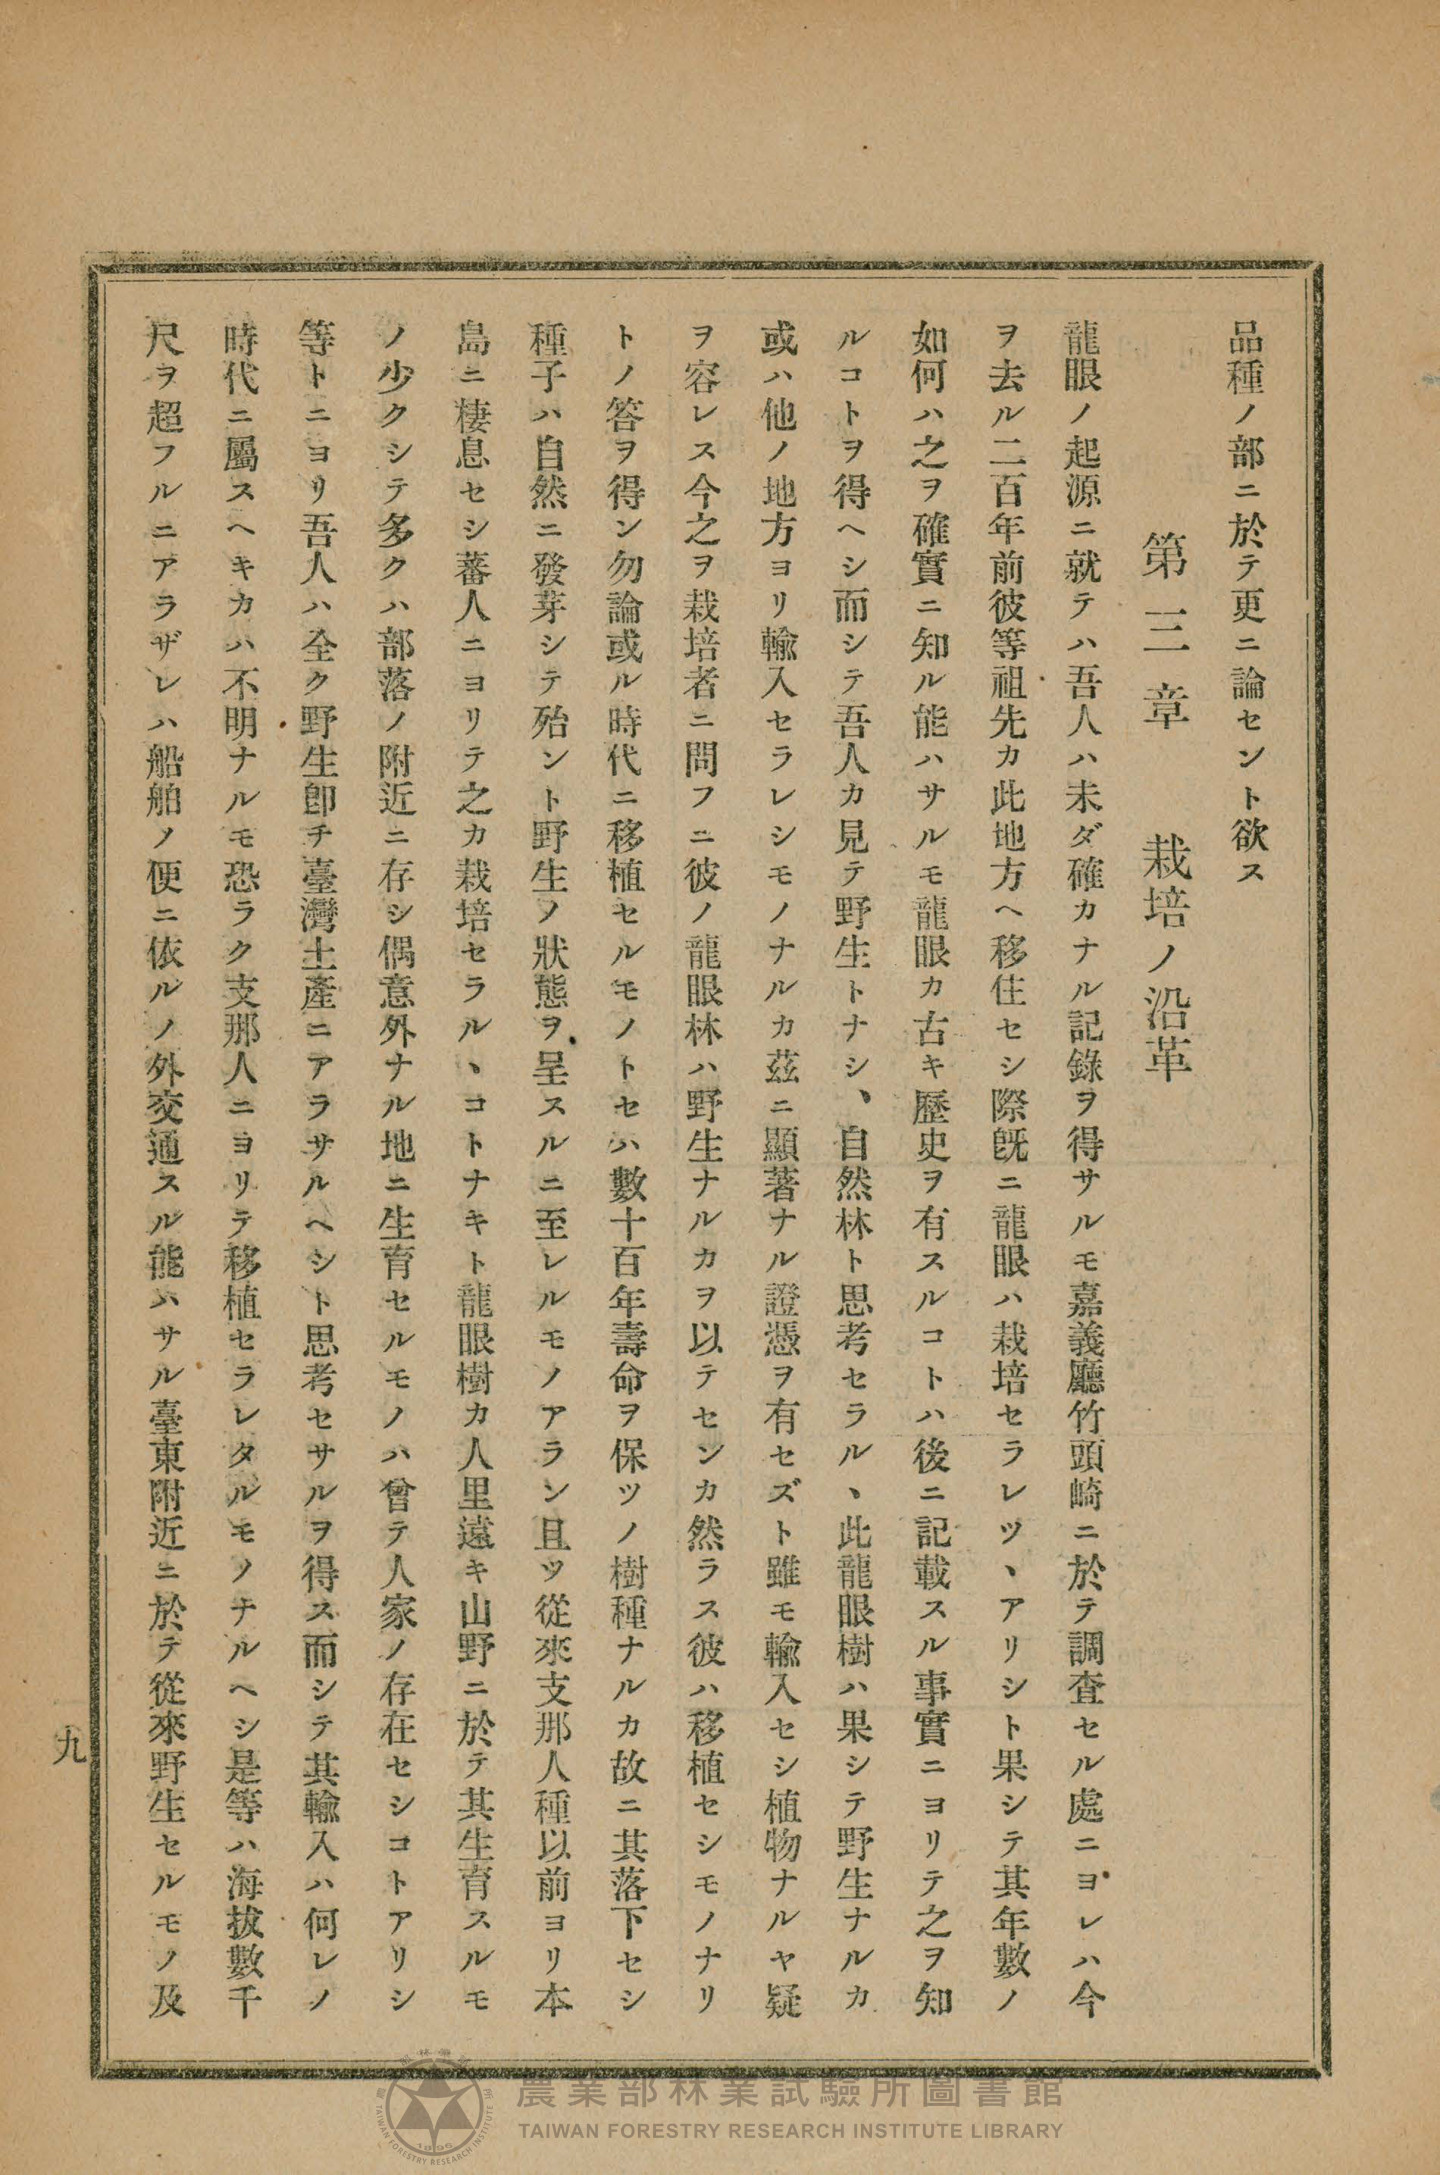 品種ノ部ニ於テ更ニ論セント欲ス
第三章 栽培ノ沿革
龍眼ノ起源ニ就テハ吾人ハ未ダ確カナル記錄ヲ得サルモ嘉義廳竹頭崎ニ於テ調査セル處ニヨレハ今
ヲ去ル二百年前彼等祖先カ此地方ヘ移住セシ際旣ニ龍眼ハ栽培セラレツヽアリシト果シテ其年數ノ
如何ハ之ヲ確實ニ知ル能ハサルモ龍眼カ古キ歷史ヲ有スルコトハ後ニ記載スル事實ニヨリテ之ヲ知
ルコトヲ得ヘシ而シテ吾人カ見テ野生トナシ、自然林ト思考セラルヽ此龍眼樹ハ果シテ野生ナルカ
或ハ他ノ地方ヨリ輸入セラレシモノナルカ茲ニ顯著ナル證憑ヲ有セズト雖モ輸入セシ植物ナルヤ疑
ヲ容レス今之ヲ栽培者ニ問フニ彼ノ龍眼林ハ野生ナルカヲ以テセンカ然ラス彼ハ移植セシモノナリ
トノ答ヲ得ン勿論或ル時代ニ移植セルモノトセハ數十百年壽命ヲ保ツノ樹種ナルカ故ニ其落下セシ
種子ハ自然ニ發芽シテ殆ント野生ノ狀態ヲ呈スルニ至レルモノアラン且ツ從來支那人種以前ヨリ本
島ニ棲息セシ蕃人ニヨリテ之カ栽培セラルヽコトナキト龍眼樹カ人里遠キ山野ニ於テ其生育スルモ
ノ少クシテ多クハ部落ノ附近ニ存シ偶意外ナル地ニ生育セルモノハ曾テ人家ノ存在セシコトアリシ
等トニヨリ吾人ハ全ク野生卽チ臺灣土產ニアラサルヘシト思考セサルヲ得ス而シテ其輸入ハ何レノ
時代ニ屬スヘキカハ不明ナルモ恐ラク支那人ニヨリテ移植セラレタルモノナルヘシ是等ハ海拔數千
尺ヲ超フルニアラザレハ船舶ノ便ニ依ルノ外交通スル能ハサル臺東附近ニ於テ從來野生セルモノ及
九
農業部林業試驗所圖書館
TAIWAN FORESTRY RESEARCH INSTITUTE LIBRARY